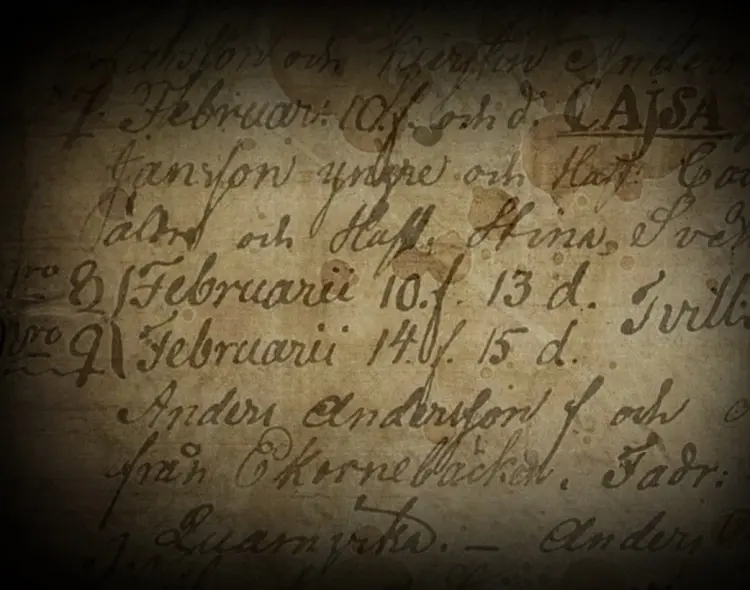 och Kirstin Ander
7. Februar: 10. f. och d. CAJSA
Jansson yngre och Hust. Ca
äldre och Hust. Stina Sve
Nro 8) Februarii 10. f. 13 d. Tvill
Nro 9) Februarii 14. f. 15 d.
Anders Andersson f och
från Ekornebäcken. Fadr:
j Quarnyrka. — Anders